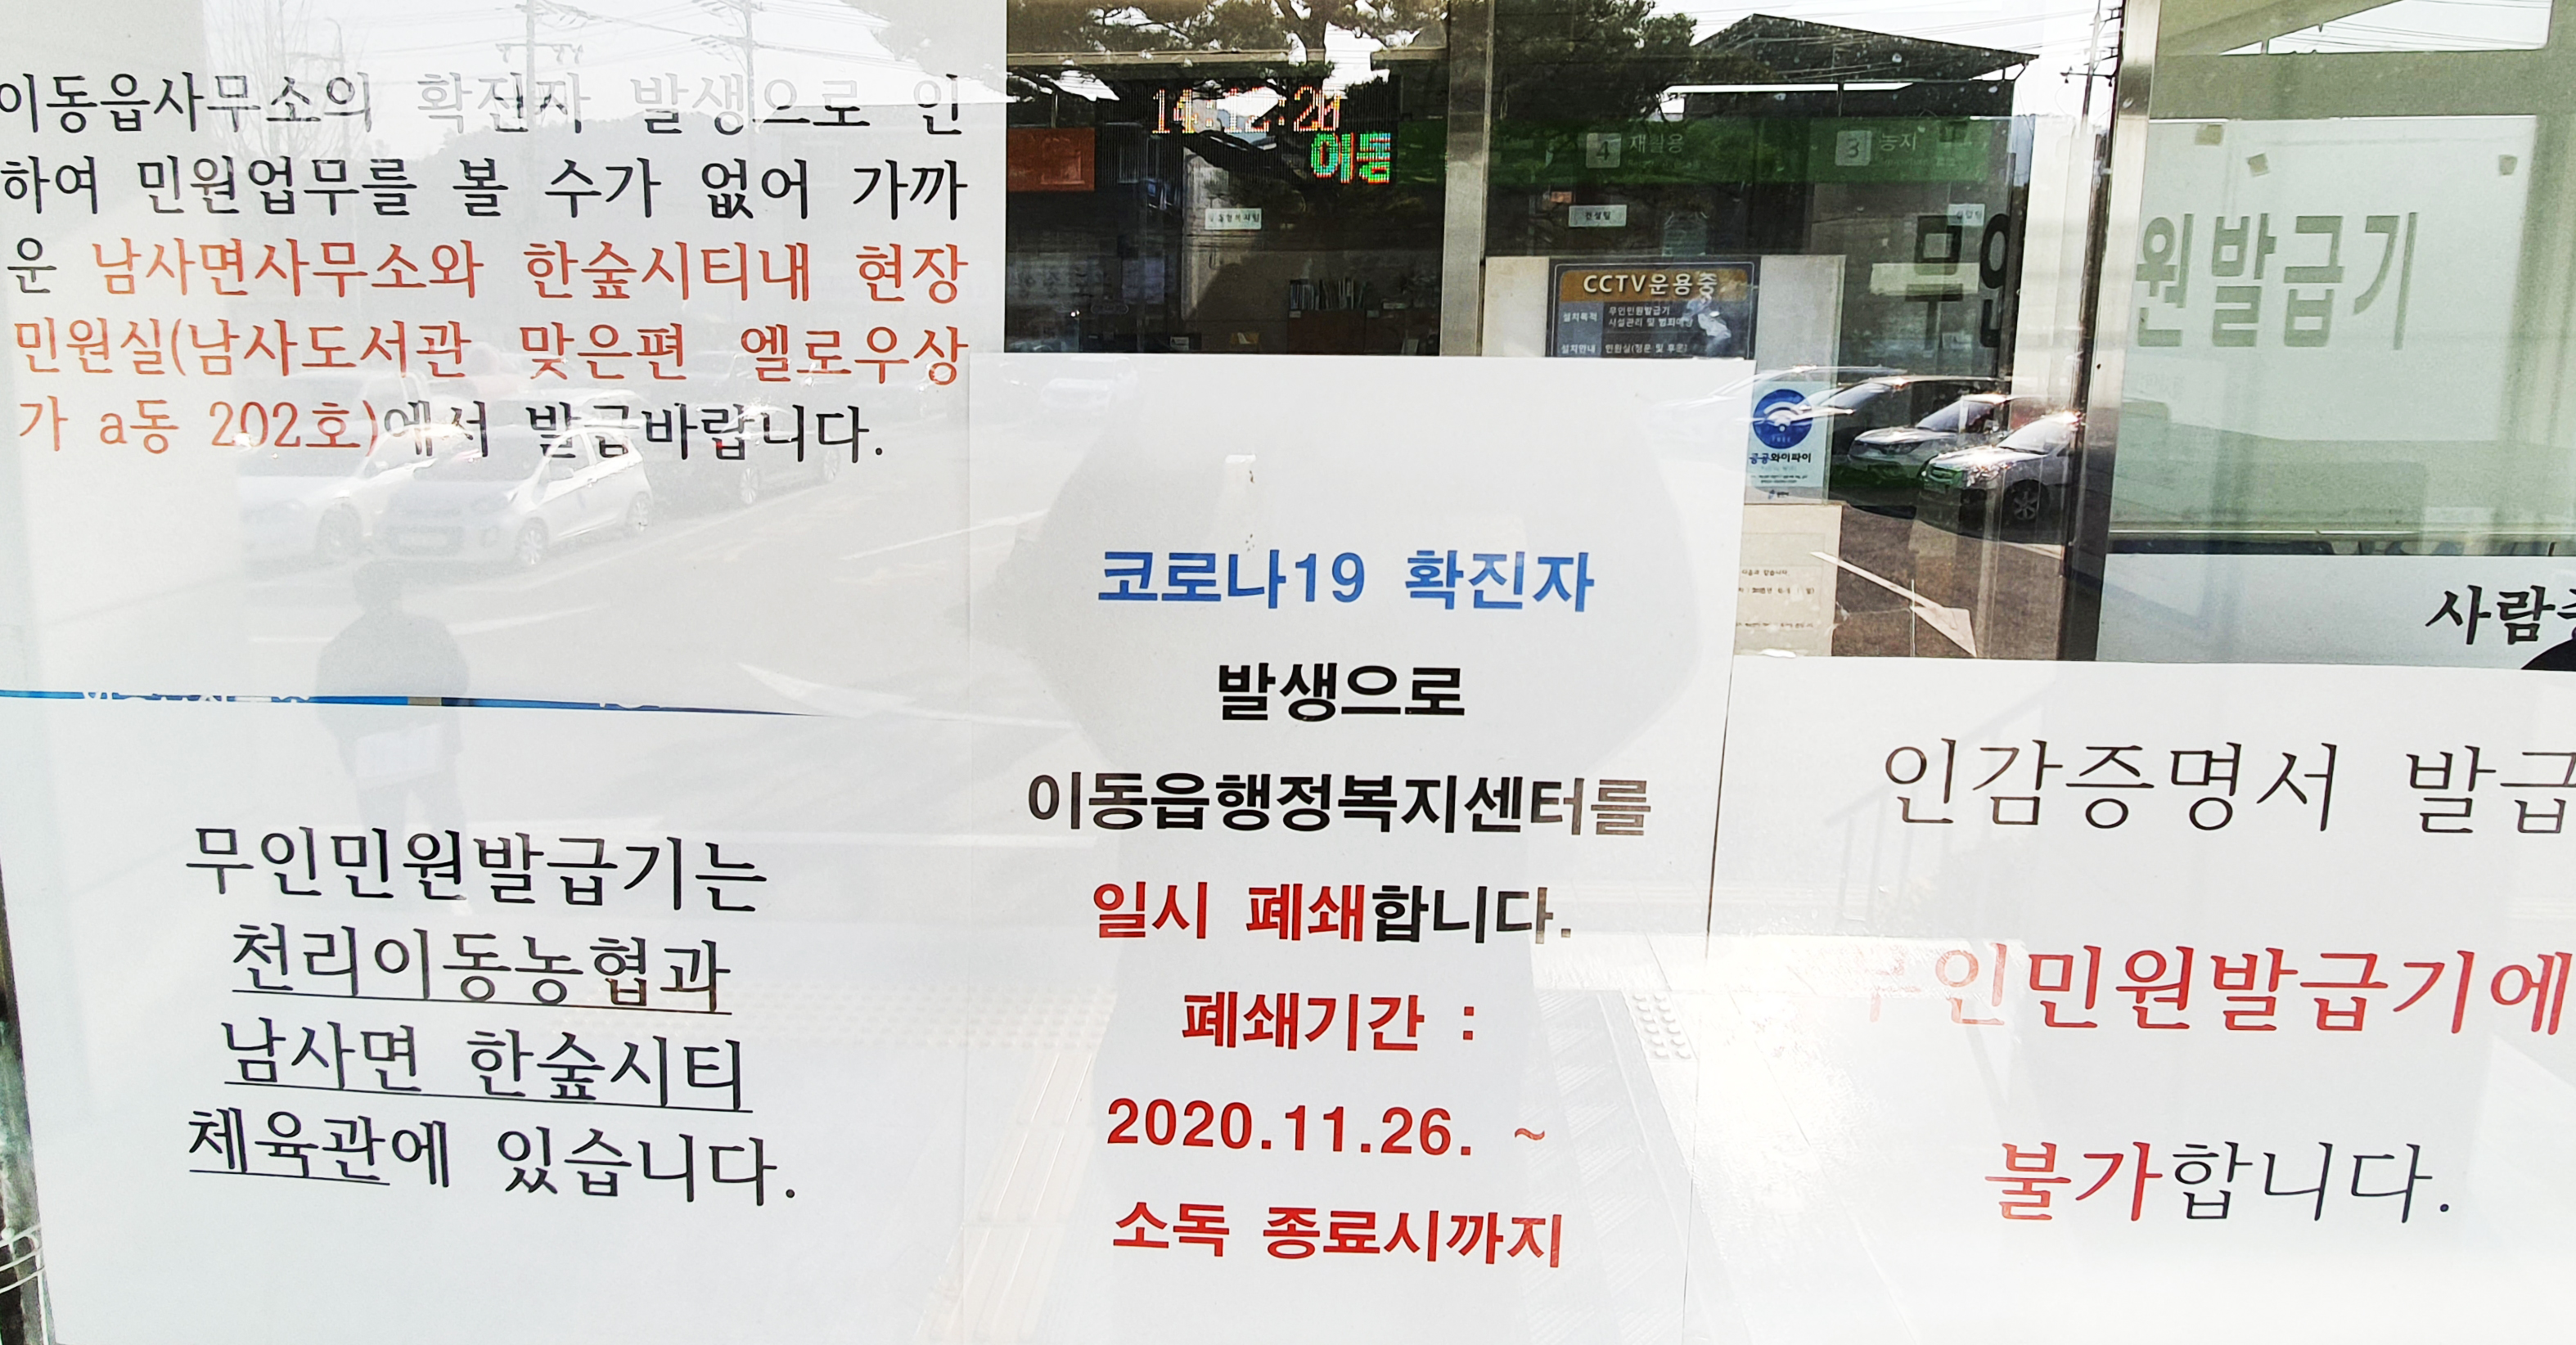 이동읍사무소의 확진자 발생으로 인
하여 민원업무를 볼 수가 없어 가까
운 남사면사무소와 한숲시티내 현장
민원실(남사도서관 맞은편 엘로우상
가 a동 202호)에서 발급바랍니다.
무인민원발급기는
천리이동농협과
남사면 한숲시티
체육관에 있습니다.
이동
4 재활용
3 농지
건설팀
CCTV운용중
설치목적 무인민원발급기
시설관리 및 범죄예방
설치안내 민원실(정문 및 후문)
공공와이파이
코로나19 확진자
발생으로
이동읍행정복지센터를
일시 폐쇄합니다.
폐쇄기간 :
2020.11.26. ~
소독 종료시까지
무인 원발급기
사람
인감증명서 발급
무인민원발급기에
불가합니다.